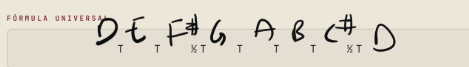 FÓRMULA UNIVERSAL
D E F# G A B C# D
T T ½ T T T T ½ T